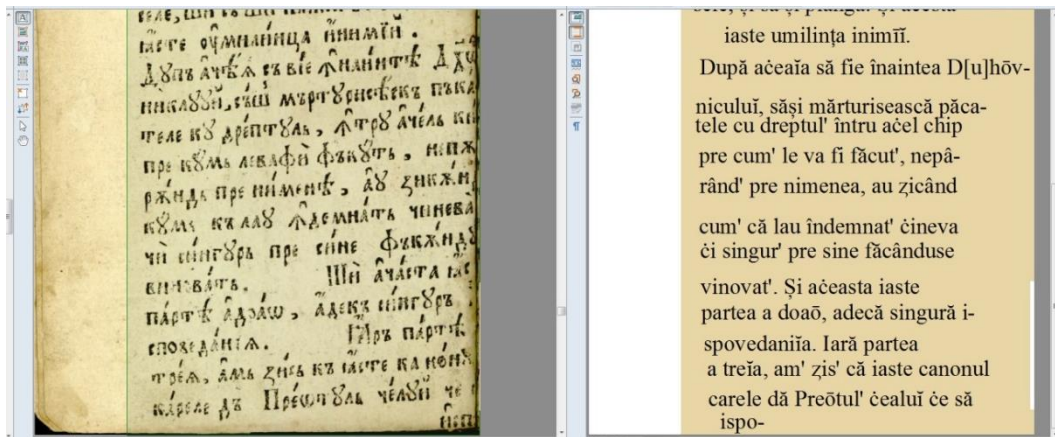 ꙗ́сте ᲂу҆мили́нца и҆́нимїй .
Дꙋпъ а҆чѣ́ѧ съ фі́е ꙟ҆наи́нтѣ Дх҃ѡ́в
никꙋлꙋй, съшѝ мъртꙋрисѣ́скъ пъка
теле кꙋ дре́птꙋль , ꙟ҆трꙋ а҆че́ль ки
пре кꙋ́мь лева фѝ фъкꙋ́ть , непѫ
рѫ́ндь пре ни́менѣ , а҆ꙋ зикѫ́н
кꙋмь къ лаꙋ ꙟ҆демна́ть чинева̀
чѝ си́нгꙋрь пре си́не фъкѫ́ндꙋ
винова́ть . Шѝ а҆ча́ста ꙗ҆с
па́ртѣ а҆ дѡа́ѡ , а҆́декъ си́нгꙋръ
споведа́нїѧ . Ꙗ҆ръ па́ртѣ
тре́ѧ, а҆мь зи́сь къ ꙗ҆́сте кано́нꙋ
ка́реле дъ Прео́тꙋль че́лꙋй че
iaste umilința inimĭĭ.
După aċeaĭa să fie înaintea D[u]hōv-
niculuĭ, săși mărturisească păca-
tele cu dreptul' întru aċel chip
pre cum' le va fi făcut', nepâ-
rând' pre nimenea, au ẓicând
cum' că lau îndemnat' ċineva
ċi singur' pre sine făcânduse
vinovat'. Și aċeasta iaste
partea a doaō, adecă singură i-
spovedaniĭa. Iară partea
a treĭa, am' ẓis' că iaste canonul
carele dă Preōtul' ċealuĭ ċe să
ispo-